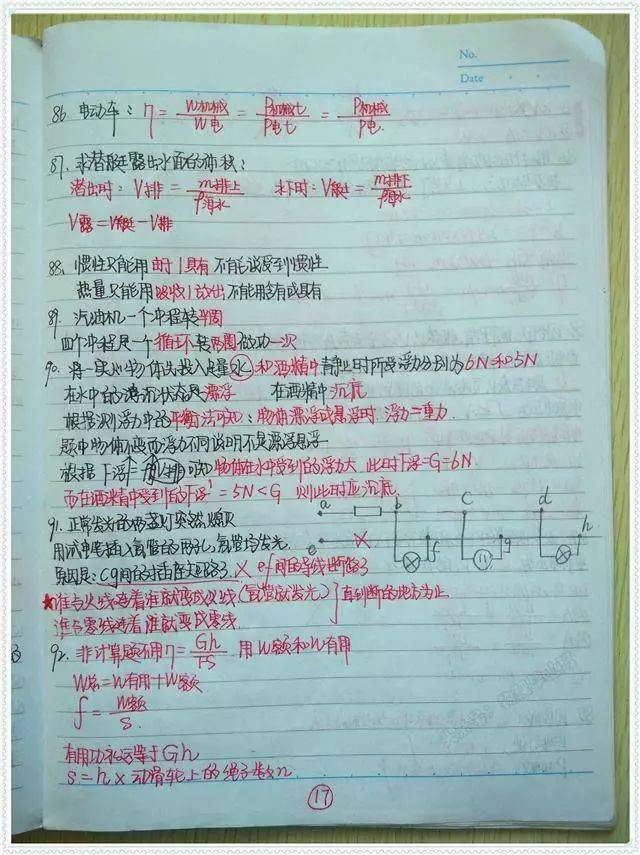 No.
Date
86. 电动车：η = W机械/W电 = P机械t/P电t = P机械/P电.
87. 求潜艇露出水面的体积：
潜出时：V排 = m排上/ρ海水 水下时：V艇 = m排下/ρ海水
V露 = V艇 - V排
88. 惯性只能用由于|具有 不能说受到惯性
热量只能用吸收|放出不能用含有或具有
89. 汽油机一个冲程转半圈
四个冲程是一个循环转两圈做功一次
90. 将一实心物体先后投入足量水和酒精中静止时所受浮力分别为6N和5N
在水中的浮沉状态是漂浮 在酒精中沉底
根据浮力中的平衡法可知：物体漂浮或悬浮时 浮力=重力.
题中物体不变而浮力不同说明不是漂浮悬浮
根据F浮=ρ液gV排可知物体在水中受到的浮力大 此时F浮=G=6N
而在酒精中受到的F浮' = 5N < G 则此时应沉底.
91. 正常发光的灯突然熄灭
用试电笔插入氖管的两孔, 氖管均发光.
原因是：cg间的插座短路了 × ef间的导线断路了
a b c d
e f g h
★谁与火线连着谁就变成火线(氖管就发光)
谁与零线连着谁就变成零线. 直到断的地方为止
92. 非计算题不用η = Gh/FS 用W额和W有用
W总 = W有用 + W额
f = W额/S.
有用功永远等于Gh
S = h × 动滑轮上的绳子数n
17